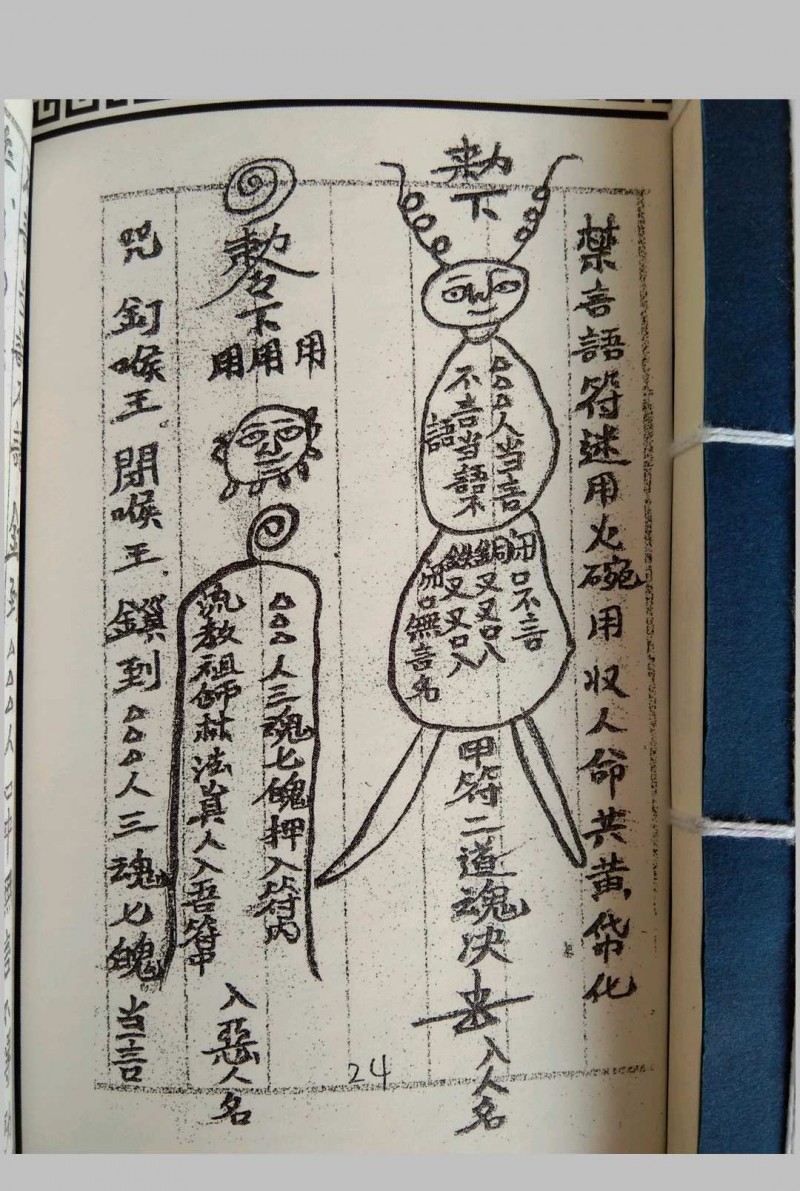 禁言語符迷用火碗用収人命共黄帋化
勅下
△△△人当言
不言当語不
語
開口不言
銅叉叉口入
鉄叉叉口入
開口無言名
甲符二道魂决
入人名
勅令下
用用用
△△△人三魂七魄押入符内
流教祖師林法真人入吾符中
入惡人名
咒 釘喉王 閉喉王 鎖到△△△人三魂七魄当言
24